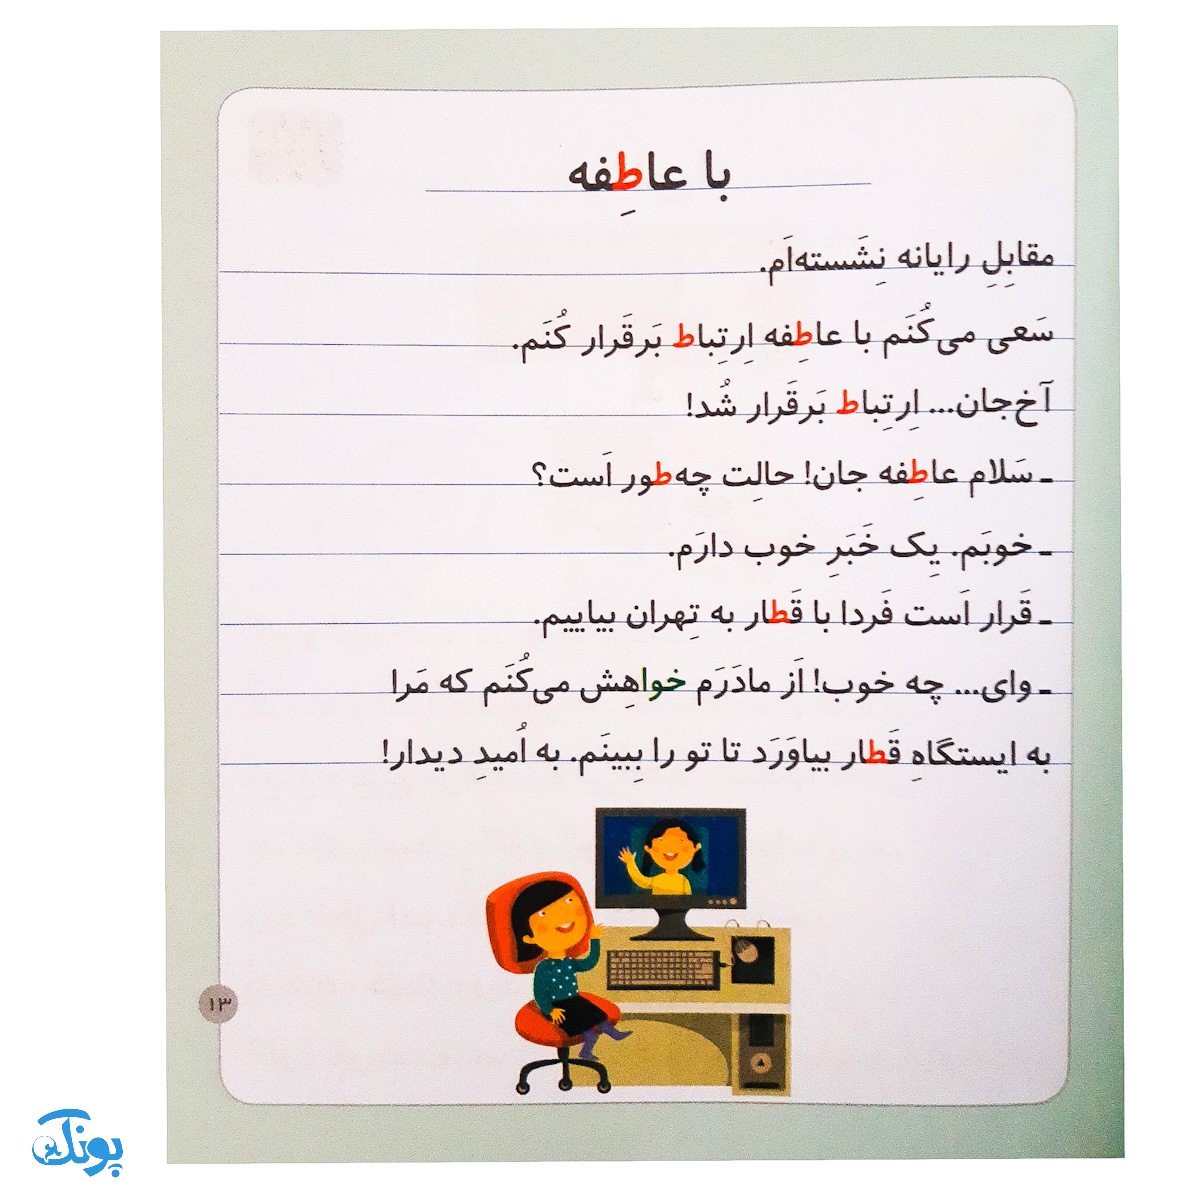 با عاطِفه
مقابِلِ رایانه نِشَسته‌اَم.
سَعی می‌کُنَم با عاطِفه اِرتِباط بَرقَرار کُنَم.
آخ‌جان... اِرتِباط بَرقَرار شُد!
ـ سَلام عاطِفه جان! حالِت چه‌طور اَست؟
ـ خوبَم. یِک خَبَرِ خوب دارَم.
ـ قَرار اَست فَردا با قَطار به تِهران بیاییم.
ـ وای... چه خوب! اَز مادَرَم خواهِش می‌کُنَم که مَرا
به ایستگاهِ قَطار بیاوَرَد تا تو را بِبینَم. به اُمیدِ دیدار!
۱۳
پونک